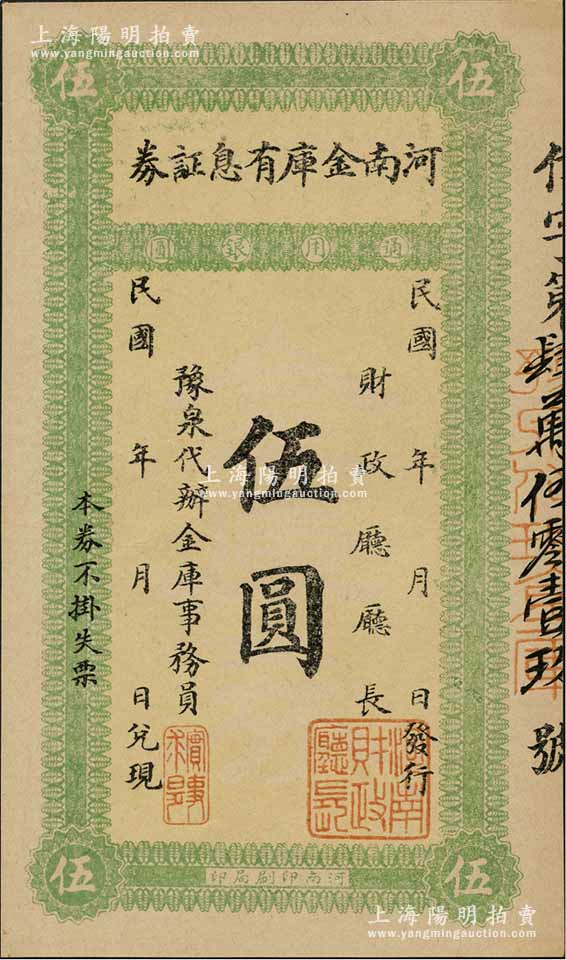 上海陽明拍賣
www.yangmingauction.com
伍
伍
河南金庫有息証券
通用銀圓
民國 年 月 日發行
財政廳廳長
河南財政廳長
伍圓
豫泉代辦金庫事務員
民國 年 月 日兌現
本券不掛失票
上海陽明拍賣
www.yangmingauction.com
伍
伍
河南印刷局印
伍字第肆萬伍零壹玖號
上海陽明拍賣
www.yangmingauction.com